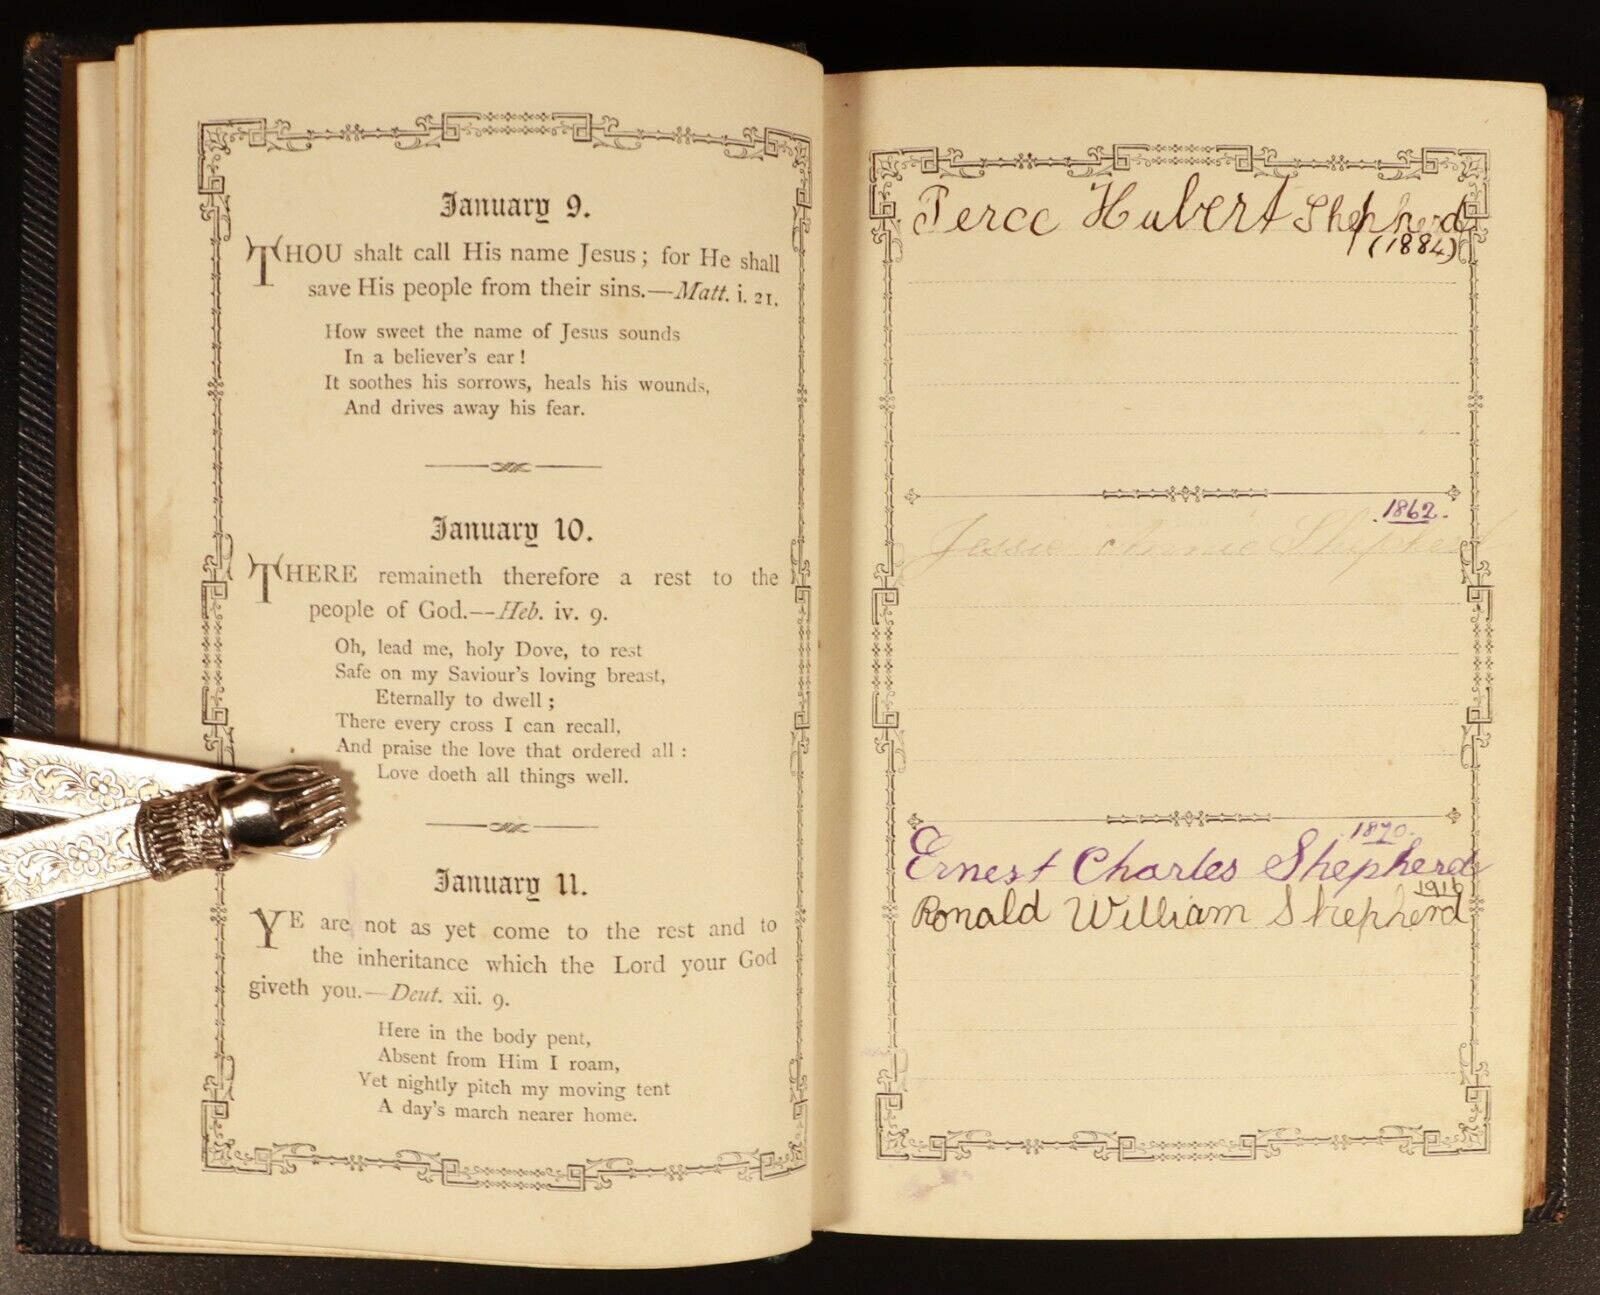 January 9.
THOU shalt call His name Jesus; for He shall
save His people from their sins.—Matt. i. 21.
How sweet the name of Jesus sounds
In a believer's ear!
It soothes his sorrows, heals his wounds,
And drives away his fear.
January 10.
THERE remaineth therefore a rest to the
people of God.—Heb. iv. 9.
Oh, lead me, holy Dove, to rest
Safe on my Saviour's loving breast,
Eternally to dwell;
There every cross I can recall,
And praise the love that ordered all:
Love doeth all things well.
January 11.
YE are not as yet come to the rest and to
the inheritance which the Lord your God
giveth you.—Deut. xii. 9.
Here in the body pent,
Absent from Him I roam,
Yet nightly pitch my moving tent
A day's march nearer home.
Perce Hubert Shepherd
(1884)
1862.
Jessie Annie Shepherd
1870.
Ernest Charles Shepherd
1916
Ronald William Shepherd